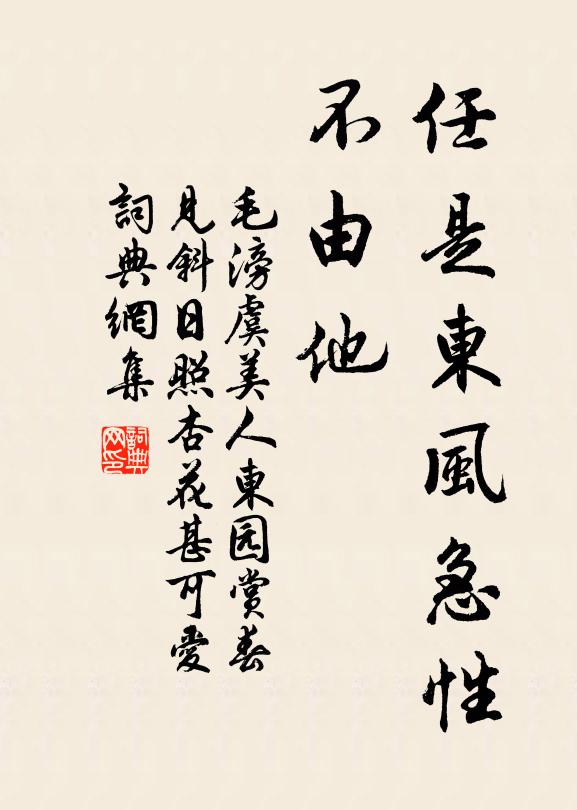 任是東風急性
不由他
毛滂虞美人東园賞春
見斜日照杏花甚可愛
詞典網集
詞典
网印